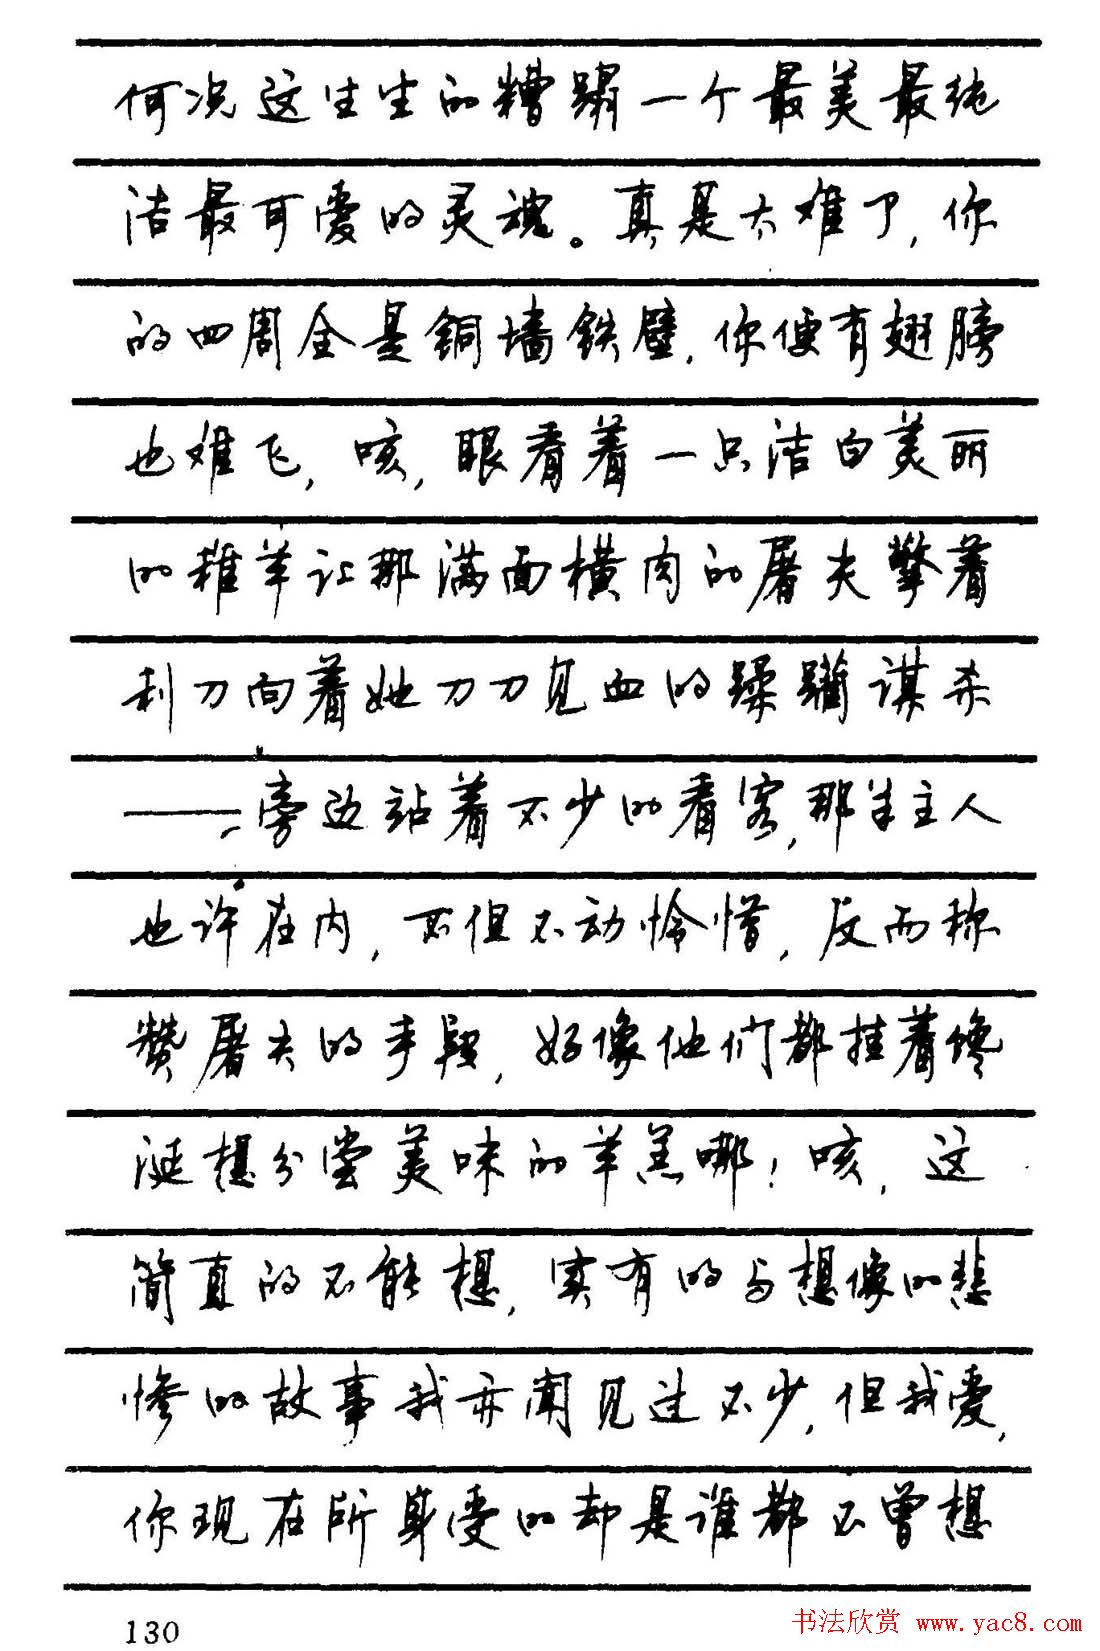 何况这生生的糟蹋一个最美最纯
洁最可爱的灵魂。真是太难了,你
的四周全是铜墙铁壁,你便有翅膀
也难飞,咳,眼看着一只洁白美丽
的稚羊让那满面横肉的屠夫擎着
利刀向着她刀刀见血的蹂躏谋杀
——旁边站着不少的看客,那羊主人
也许在内,不但不动怜惜,反而称
赞屠夫的手段,好像他们都挂着馋
涎想分尝美味的羊羔哪!咳,这
简直的不能想,实有的与想像的悲
惨的故事我亦闻见过不少,但我爱,
你现在所身受的却是谁都不曾想
130
书法欣赏 www.yac8.com